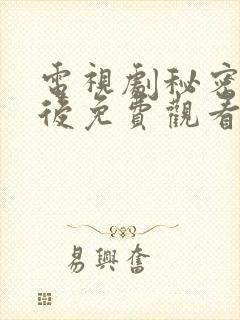 電視劇秘密
後免費觀看
易興奮